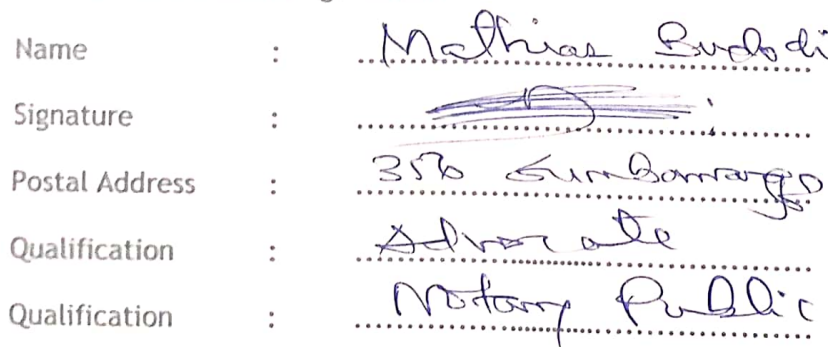 Name : Mathias Budodi
Signature :
Postal Address : 350
Qualification : Advocate
Qualification : Notary Public